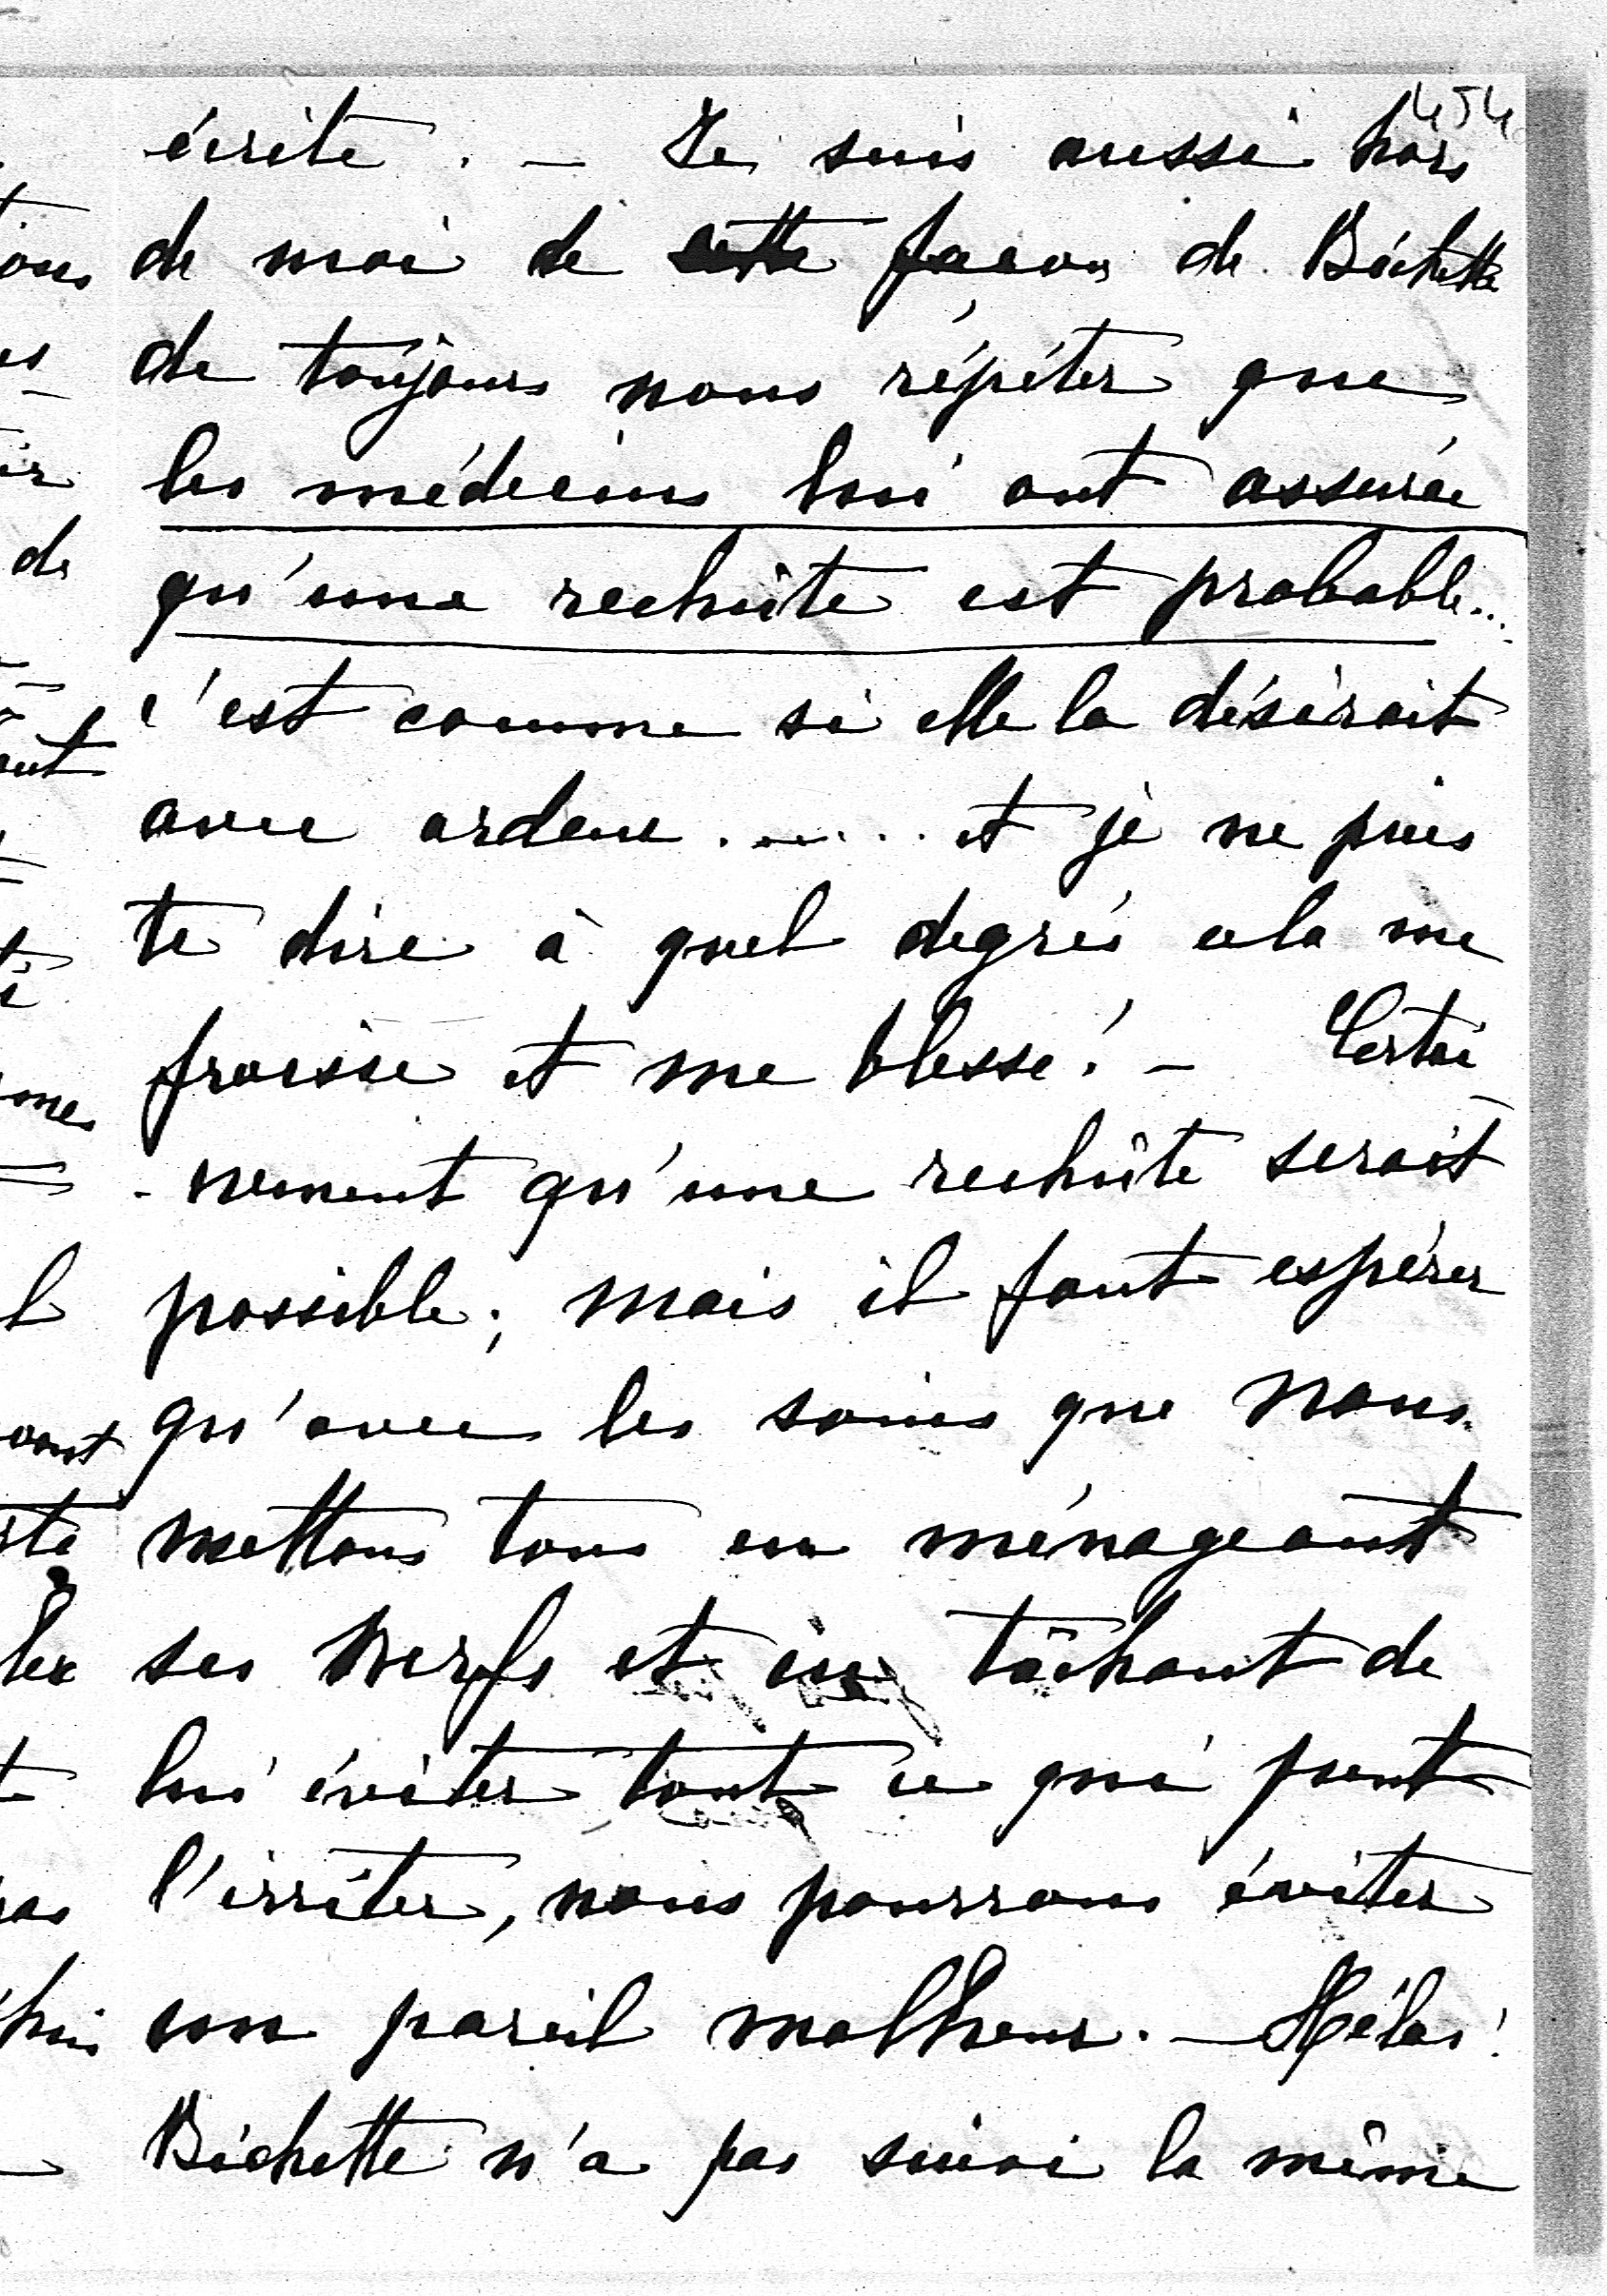 454
écrite. — Je suis aussi hors
de moi de cette façon de Bichette
de toujours nous répéter que
les médecins lui ont assurée
qu'une rechûte est probable...
c'est comme si elle la désirait
avec ardeur....... et je ne puis
te dire à quel degrés cela me
froisse et me blesse! — Certai
- nement qu'une rechûte serait
possible; mais il faut espérer
qu'avec les soins que nous
mettons tous en ménageant
ses nerfs et en tâchant de
lui éviter tout ce qui peut
l'irriter, nous pourrons éviter
un pareil malheur. — Hélas!
Bichette n'a pas suivi la même